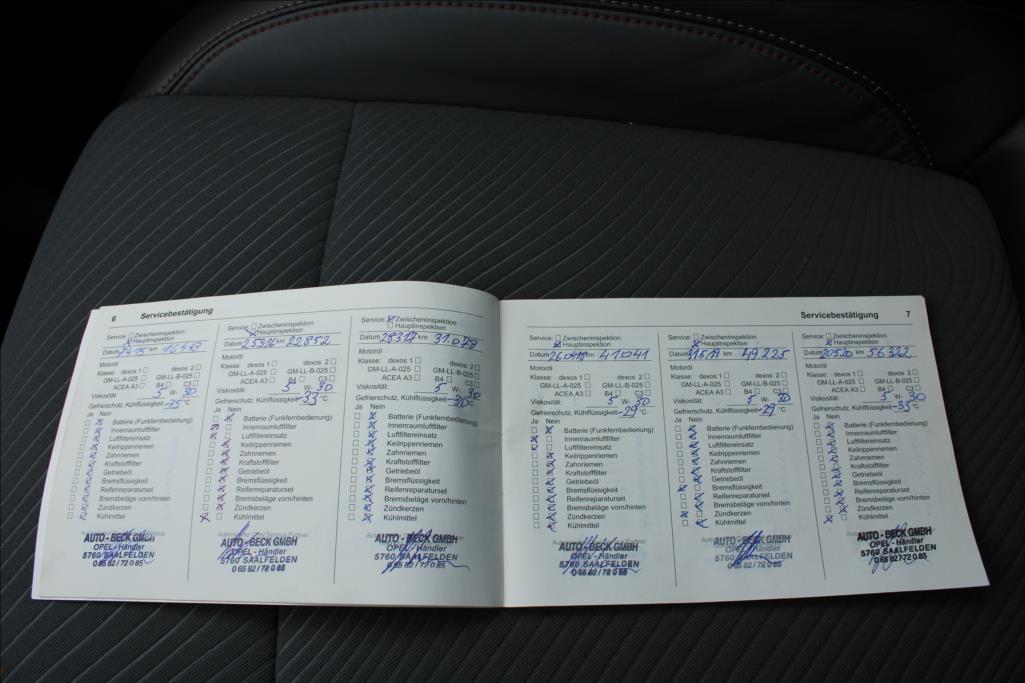 6 Servicebestätigung
Service: Zwischeninspektion
Hauptinspektion
Datum km
Motoröl
Klasse: dexos 1 dexos 2
GM-LL-A-025 GM-LL-B-025
ACEA A3 B4 C3
Viskosität: 5 W- 30
Gefrierschutz, Kühlflüssigkeit -35 °C
Ja Nein
Batterie (Funkfernbedienung)
Innenraumluftfilter
Luftfiltereinsatz
Keilrippenriemen
Zahnriemen
Kraftstofffilter
Getriebeöl
Bremsflüssigkeit
Reifenreparaturset
Bremsbeläge vorn/hinten
Zündkerzen
Kühlmittel
AUTO-BECK GMBH
OPEL-Händler
5760 SAALFELDEN
0 65 82 / 72 0 85
Service: Zwischeninspektion
Hauptinspektion
Datum 25316 km 22852
Motoröl
Klasse: dexos 1 dexos 2
GM-LL-A-025 GM-LL-B-025
ACEA A3 B4 C3
Viskosität: 5 W- 30
Gefrierschutz, Kühlflüssigkeit -33 °C
Ja Nein
Batterie (Funkfernbedienung)
Innenraumluftfilter
Luftfiltereinsatz
Keilrippenriemen
Zahnriemen
Kraftstofffilter
Getriebeöl
Bremsflüssigkeit
Reifenreparaturset
Bremsbeläge vorn/hinten
Zündkerzen
Kühlmittel
AUTO-BECK GMBH
OPEL-Händler
5760 SAALFELDEN
0 65 82 / 72 0 85
Service: Zwischeninspektion
Hauptinspektion
Datum 28317 km 31.079
Motoröl
Klasse: dexos 1 dexos 2
GM-LL-A-025 GM-LL-B-025
ACEA A3 B4 C3
Viskosität: 5 W- 30
Gefrierschutz, Kühlflüssigkeit -30 °C
Ja Nein
Batterie (Funkfernbedienung)
Innenraumluftfilter
Luftfiltereinsatz
Keilrippenriemen
Zahnriemen
Kraftstofffilter
Getriebeöl
Bremsflüssigkeit
Reifenreparaturset
Bremsbeläge vorn/hinten
Zündkerzen
Kühlmittel
AUTO-BECK GMBH
OPEL-Händler
5760 SAALFELDEN
0 65 82 / 72 0 85
Servicebestätigung 7
Service: Zwischeninspektion
Hauptinspektion
Datum km 41041
Motoröl
Klasse: dexos 1 dexos 2
GM-LL-A-025 GM-LL-B-025
ACEA A3 B4 C3
Viskosität: 5 W- 30
Gefrierschutz, Kühlflüssigkeit -29 °C
Ja Nein
Batterie (Funkfernbedienung)
Innenraumluftfilter
Luftfiltereinsatz
Keilrippenriemen
Zahnriemen
Kraftstofffilter
Getriebeöl
Bremsflüssigkeit
Reifenreparaturset
Bremsbeläge vorn/hinten
Zündkerzen
Kühlmittel
AUTO-BECK GMBH
OPEL-Händler
5760 SAALFELDEN
0 65 82 / 72 0 85
Service: Zwischeninspektion
Hauptinspektion
Datum km 49225
Motoröl
Klasse: dexos 1 dexos 2
GM-LL-A-025 GM-LL-B-025
ACEA A3 B4 C3
Viskosität: 5 W- 30
Gefrierschutz, Kühlflüssigkeit -29 °C
Ja Nein
Batterie (Funkfernbedienung)
Innenraumluftfilter
Luftfiltereinsatz
Keilrippenriemen
Zahnriemen
Kraftstofffilter
Getriebeöl
Bremsflüssigkeit
Reifenreparaturset
Bremsbeläge vorn/hinten
Zündkerzen
Kühlmittel
AUTO-BECK GMBH
OPEL-Händler
5760 SAALFELDEN
0 65 82 / 72 0 85
Service: Zwischeninspektion
Hauptinspektion
Datum km 56322
Motoröl
Klasse: dexos 1 dexos 2
GM-LL-A-025 GM-LL-B-025
ACEA A3 B4 C3
Viskosität: 5 W- 30
Gefrierschutz, Kühlflüssigkeit -35 °C
Ja Nein
Batterie (Funkfernbedienung)
Innenraumluftfilter
Luftfiltereinsatz
Keilrippenriemen
Zahnriemen
Kraftstofffilter
Getriebeöl
Bremsflüssigkeit
Reifenreparaturset
Bremsbeläge vorn/hinten
Zündkerzen
Kühlmittel
AUTO-BECK GMBH
OPEL-Händler
5760 SAALFELDEN
0 65 82 / 72 0 85